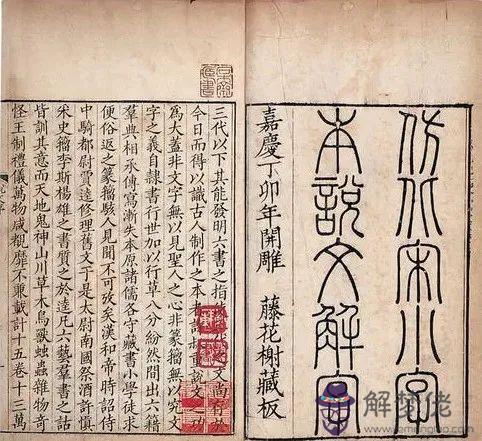 仿北宋小字
本說文解字
嘉慶丁卯年開雕 藤花榭藏板
三代以下其能發明六書之指 文尚存於
今日而得以識古人制作之本者許叔重說文之功
爲大蓋非文字無以見聖人之心非篆籀無以究文
字之義自隷書行世加以行草八分紛然間出六籍
羣典相承傳寫漸失本原諸儒各守藏書小學徒求
便俗返之篆籀駭人見聞不可改矣漢和帝時詔侍
中騎都尉賈逵修理舊文于是太尉南國祭酒許慎
采史籀李斯楊雄之書質之於逵凡六藝羣書之詁
皆訓其意而天地鬼神山川草木鳥獸蟲蝨雜物奇
怪王制禮儀萬物咸覩靡不兼載計十五卷十三萬
解梦佬